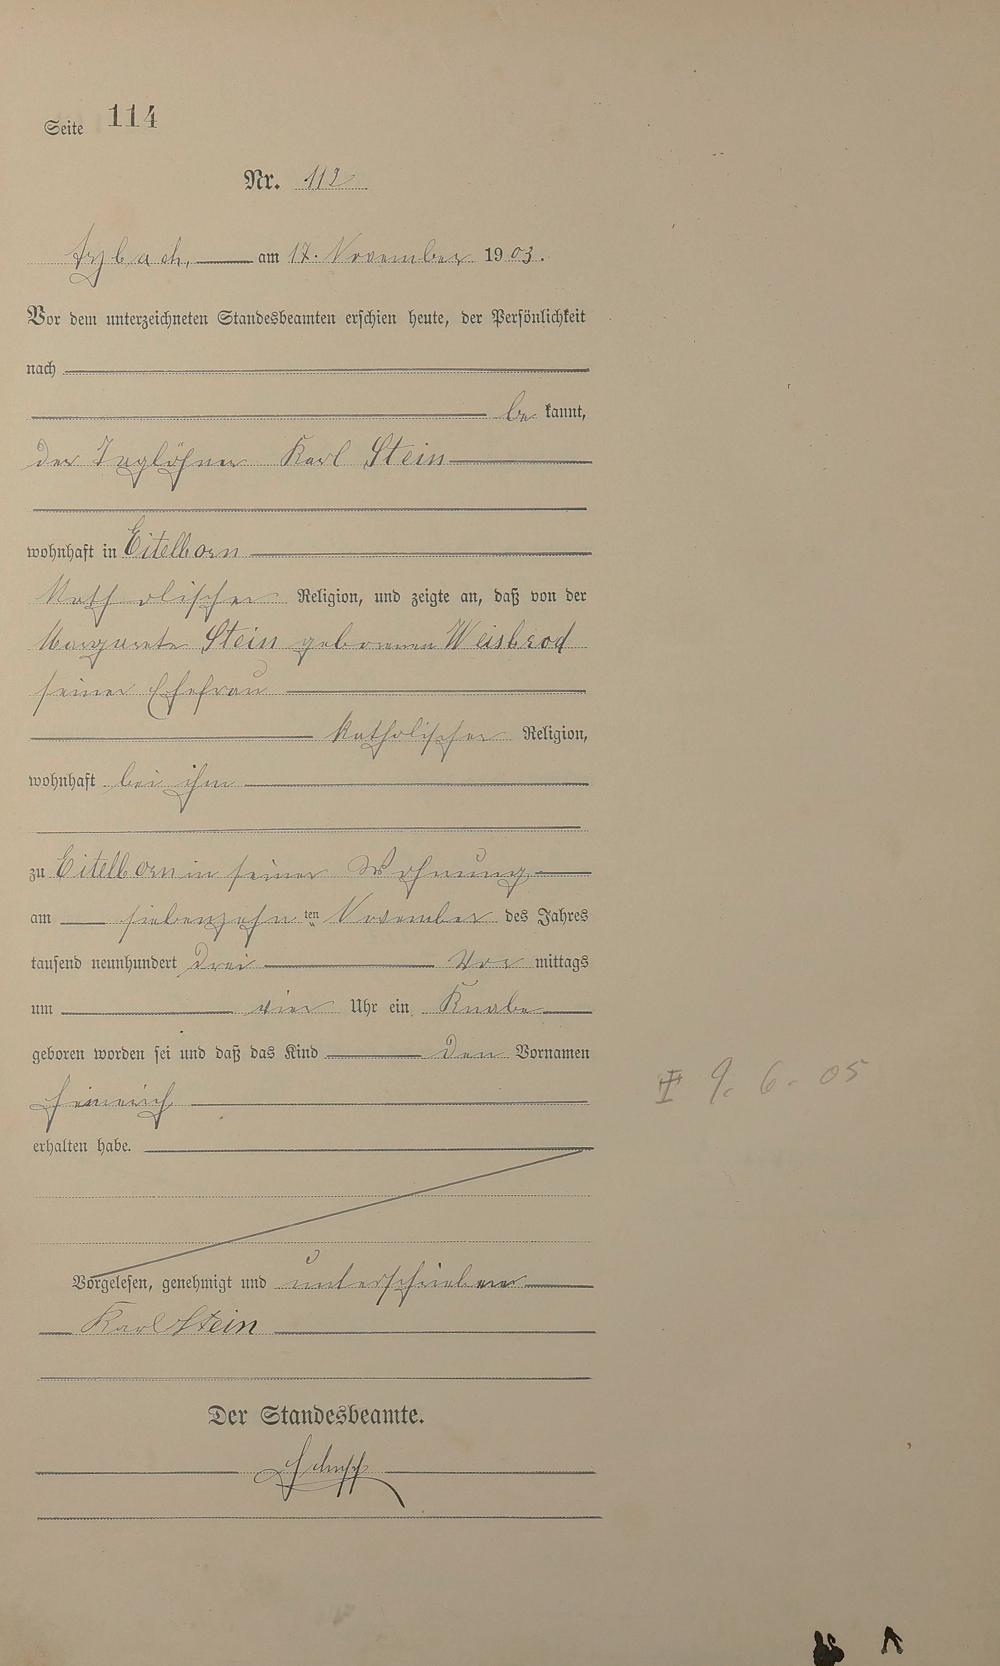 Seite 114
Nr. 112
Arzbach, am 17. November 1903.
Vor dem unterzeichneten Standesbeamten erschien heute, der Persönlichkeit
nach
be kannt,
der Taglöhner Karl Stein
wohnhaft in Eitelborn
katholischer Religion, und zeigte an, daß von der
Margarete Stein geborenen Weisbrod
seiner Ehefrau
katholischer Religion,
wohnhaft bei ihm
zu Eitelborn in seiner Wohnung
am siebenzehn ten November des Jahres
tausend neunhundert drei Vor mittags
um vier Uhr ein Knabe
geboren worden sei und daß das Kind den Vornamen
Heinrich
erhalten habe.
9. 6. 05
Vorgelesen, genehmigt und unterschrieben
Karl Stein
Der Standesbeamte.